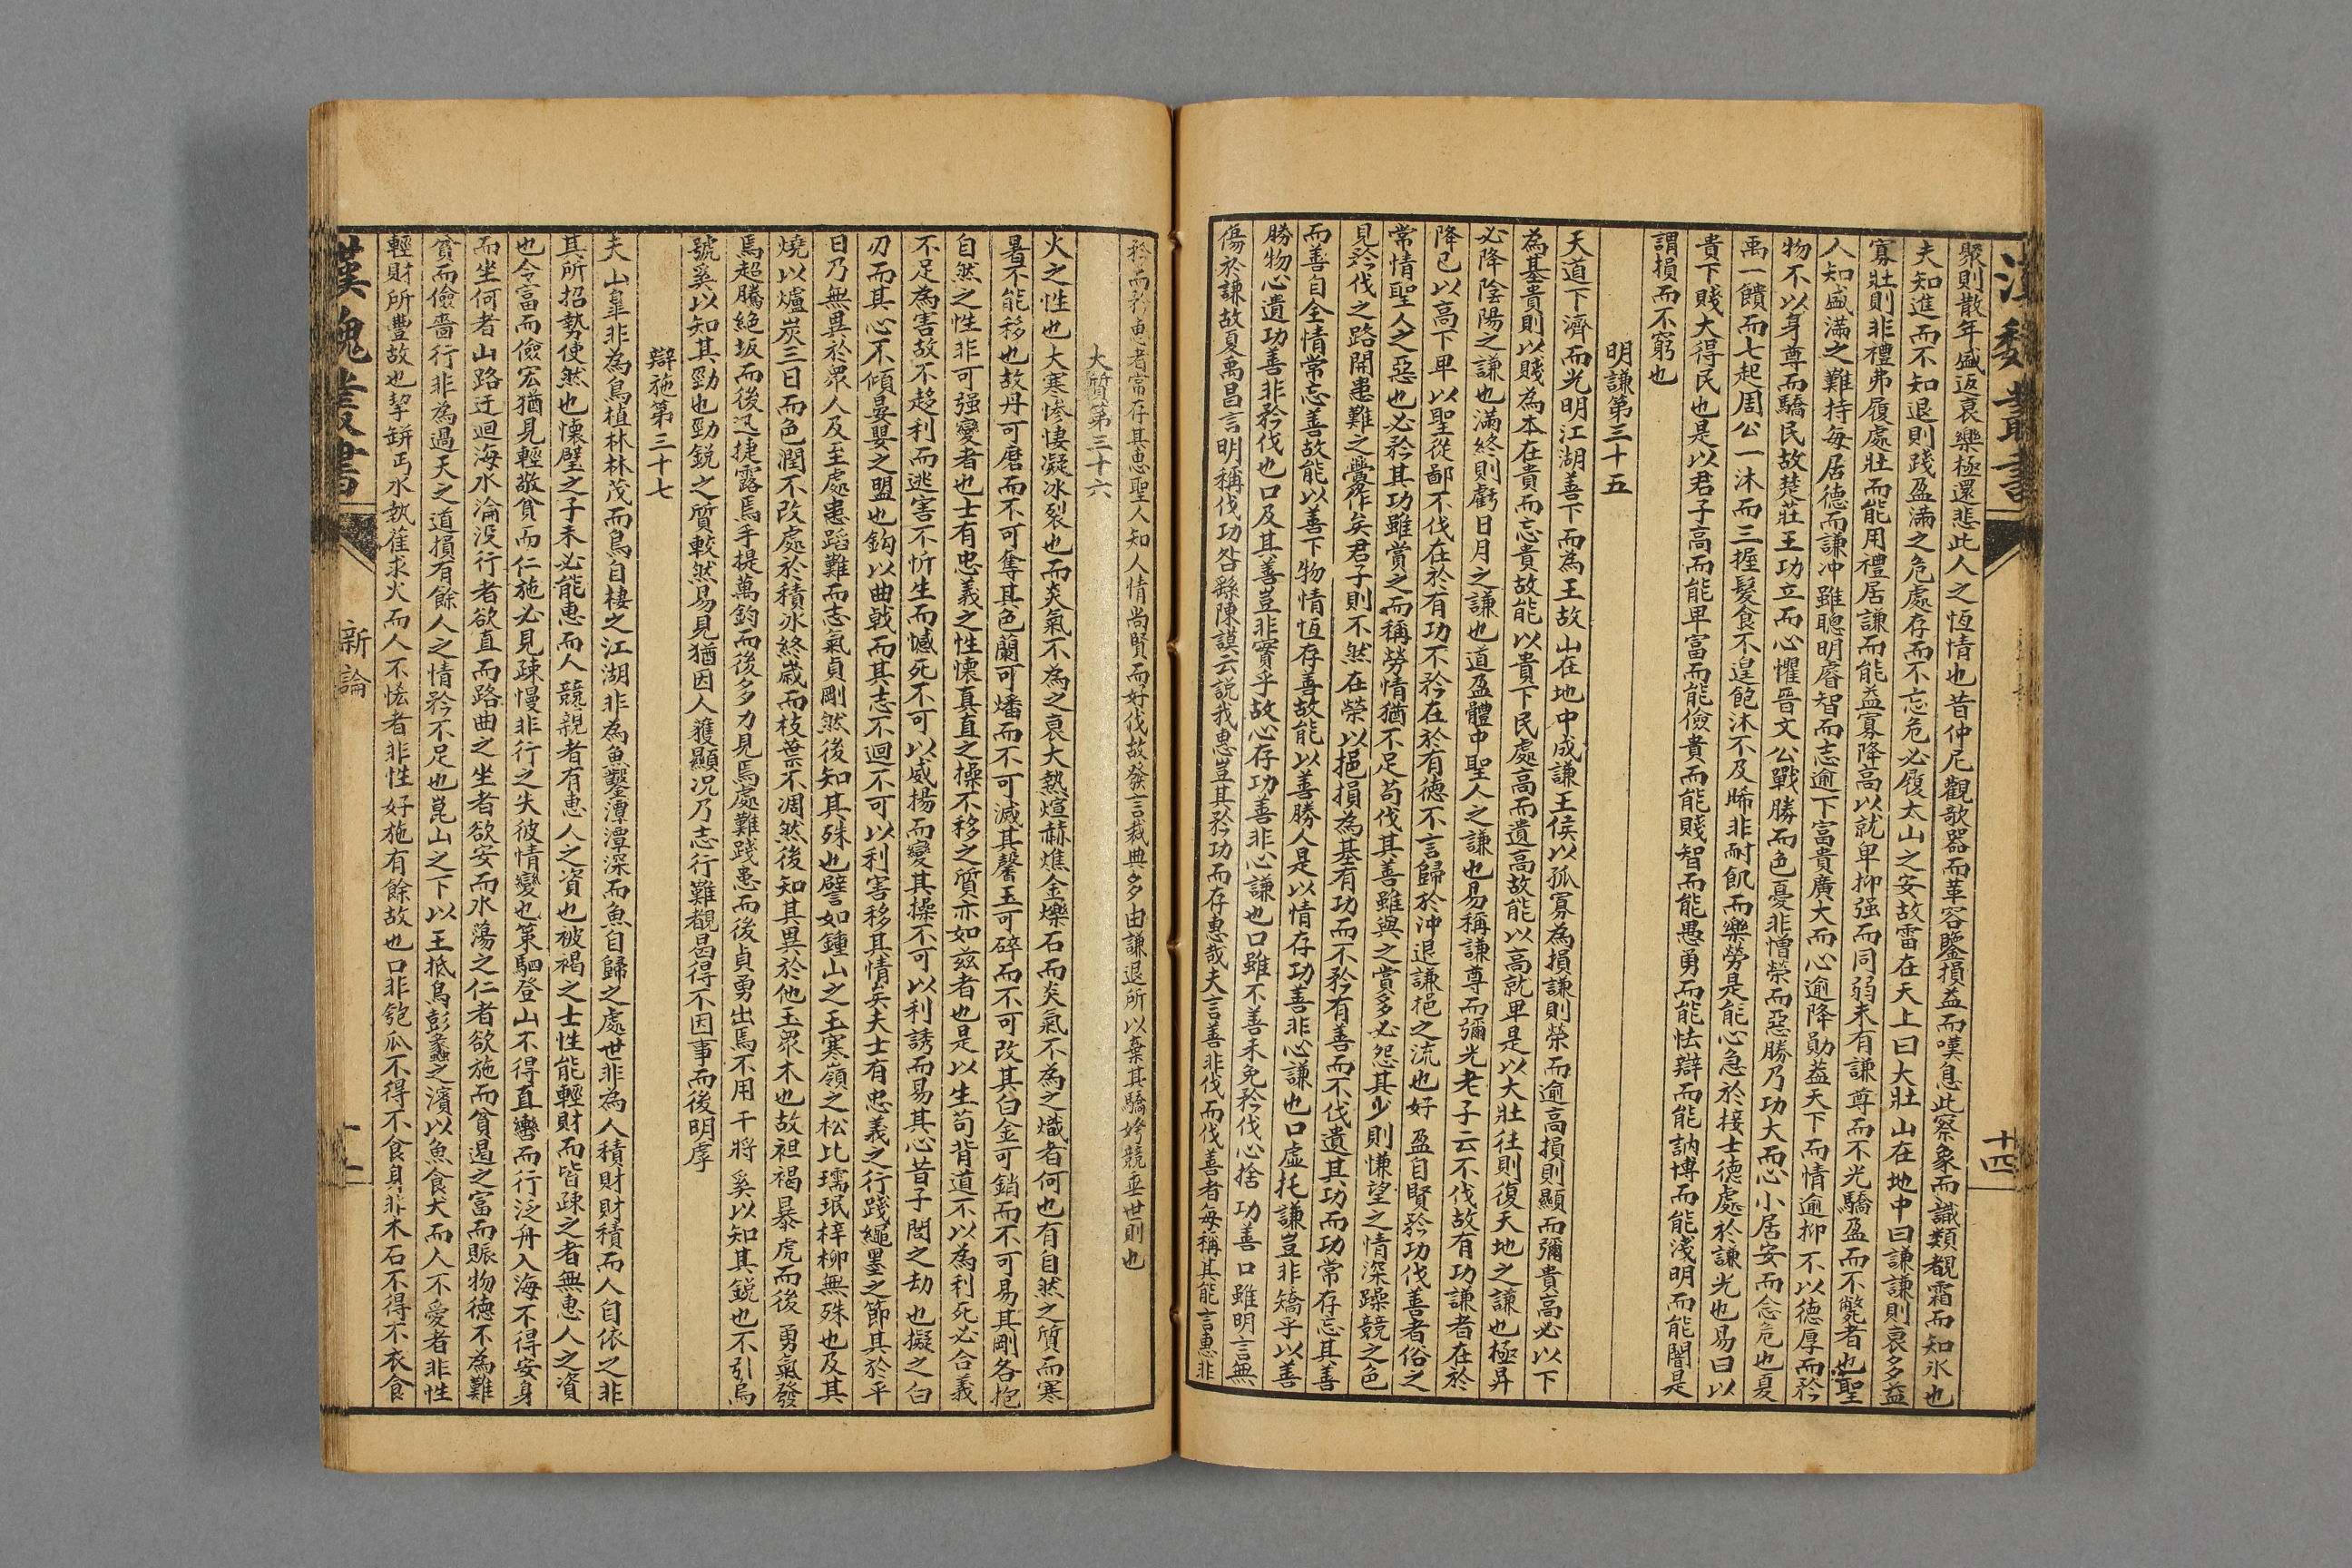 漢魏叢書
十四
聚則散年盛返衰樂極還悲此人之恆情也昔仲尼觀欹器而革容鑒損益而嘆息此察象而識類覩霜而知氷也
夫知進而不知退則踐盈滿之危處存而不忘危必履太山之安故雷在天上曰大壯山在地中曰謙謙則裒多益
寡壯則非禮弗履處壯而能用禮居謙而能益寡降高以就卑抑强而同弱未有謙尊而不光驕盈而不斃者也聖
人知盛滿之難持每居德而謙冲雖聰明睿智而志逾下富貴廣大而心逾降勛葢天下而情逾抑不以德厚而矜
物不以身尊而驕民故楚莊王功立而心懼晋文公戰勝而色憂非憎榮而惡勝乃功大而心小居安而念危也夏
禹一饋而七起周公一沐而三握髮食不遑飽沐不及晞非耐飢而樂勞是能心急於接士德處於謙光也易曰以
貴下賤大得民也是以君子高而能卑富而能儉貴而能賤智而能愚勇而能怯辯而能訥博而能淺明而能闇是
謂損而不窮也
明謙第三十五
天道下濟而光明江湖善下而為王故山在地中成謙王侯以孤寡為損謙則榮而逾高損則顯而彌貴高必以下
為基貴則以賤為本在貴而忘貴故能以貴下民處高而遺高故能以高就卑是以大壯往則復天地之謙也極昇
必降陰陽之謙也滿終則虧日月之謙也道盈體中聖人之謙也易稱謙尊而彌光老子云不伐故有功謙者在於
降己以高下卑以聖從鄙不伐在於有功不矜在於有德不言歸於沖退謙挹之流也好盈自賢矜功伐善者俗之
常情聖人之惡也必矜其功雖賞之而稱勞情猶不足苟伐其善雖與之賞多必怨其少則慊望之情深躁競之色
見矜伐之路開患難之釁作矣君子則不然在榮以挹損為基有功而不矜有善而不伐遺其功而功常存忘其善
而善自全情常忘善故能以善下物情恆存善故能以善勝人是以情存功善非心謙也口虛托謙豈非矯乎以善
勝物心遺功善非矜伐也口及其善豈非實乎故心存功善非心謙也口雖不善未免矜伐心捨功善口雖明言無
傷於謙故夏禹昌言明稱伐功咎繇陳謨云說我惠豈其矜功而存惠哉夫言善非伐而伐善者每稱其能言惠非
矜而矜惠者常存其惠聖人知人情尚賢而好伐故發言裁典多由謙退所以棄其驕矜競垂世則也
大質第三十六
火之性也大寒慘悽凝冰裂也而炎氣不為之衰大熱煊赫燋金爍石而炎氣不為之熾者何也有自然之質而寒
暑不能移也故丹可磨而不可奪其色蘭可燔而不可滅其馨玉可碎而不可改其白金可銷而不可易其剛各抱
自然之性非可强變者也士有忠義之性懷真直之操不移之質亦如兹者也是以生苟背道不以為利死必合義
不足為害故不趍利而逃害不忻生而憾死不可以威揚而變其操不可以利誘而易其心昔子閭之劫也擬之白
刃而其心不傾晏嬰之盟也鈎以曲戟而其志不迴不可以利害移其情矣夫士有忠義之行踐繩墨之節其於平
日乃無異於眾人及至處患蹈難而志氣貞剛然後知其殊也譬如鍾山之玉寒嶺之松比璓珉梓柳無殊也及其
燒以爐炭三日而色潤不改處於積冰終歲而枝葉不凋然後知其異於他玉眾木也故袒裼暴虎而後勇氣發
焉超騰絕坂而後迅捷露焉手提萬鈞而後多力見焉處難踐患而後貞勇出焉不用干將奚以知其銳也不引烏
號奚以知其勁也勁銳之質較然易見猶因人獲顯况乃志行難覩曷得不因事而後明虖
辯施第三十七
夫山皐非為鳥植林林茂而鳥自棲之江湖非為魚鑿潭潭深而魚自歸之處世非為人積財財積而人自依之非
其所招勢使然也懷璧之子未必能惠而人競親者有惠人之資也被褐之士性能輕財而皆疎之者無惠人之資
也今富而儉宏猶見輕敬貧而仁施必見疎慢非行之失彼情變也策駟登山不得直轡而行泛舟入海不得安身
而坐何者山路迂迴海水淪沒行者欲直而路曲之坐者欲安而水蕩之仁者欲施而貧遏之富而賑物德不為難
貧而儉嗇行非為過天之道損有餘人之情矜不足也崑山之下以玉抵烏彭蠡之濱以魚食犬而人不愛者非性
輕財所豐故也挈缾丐水執萑求火而人不恡者非性好施有餘故也口非匏瓜不得不食身非木石不得不衣食
漢魏叢書
新論